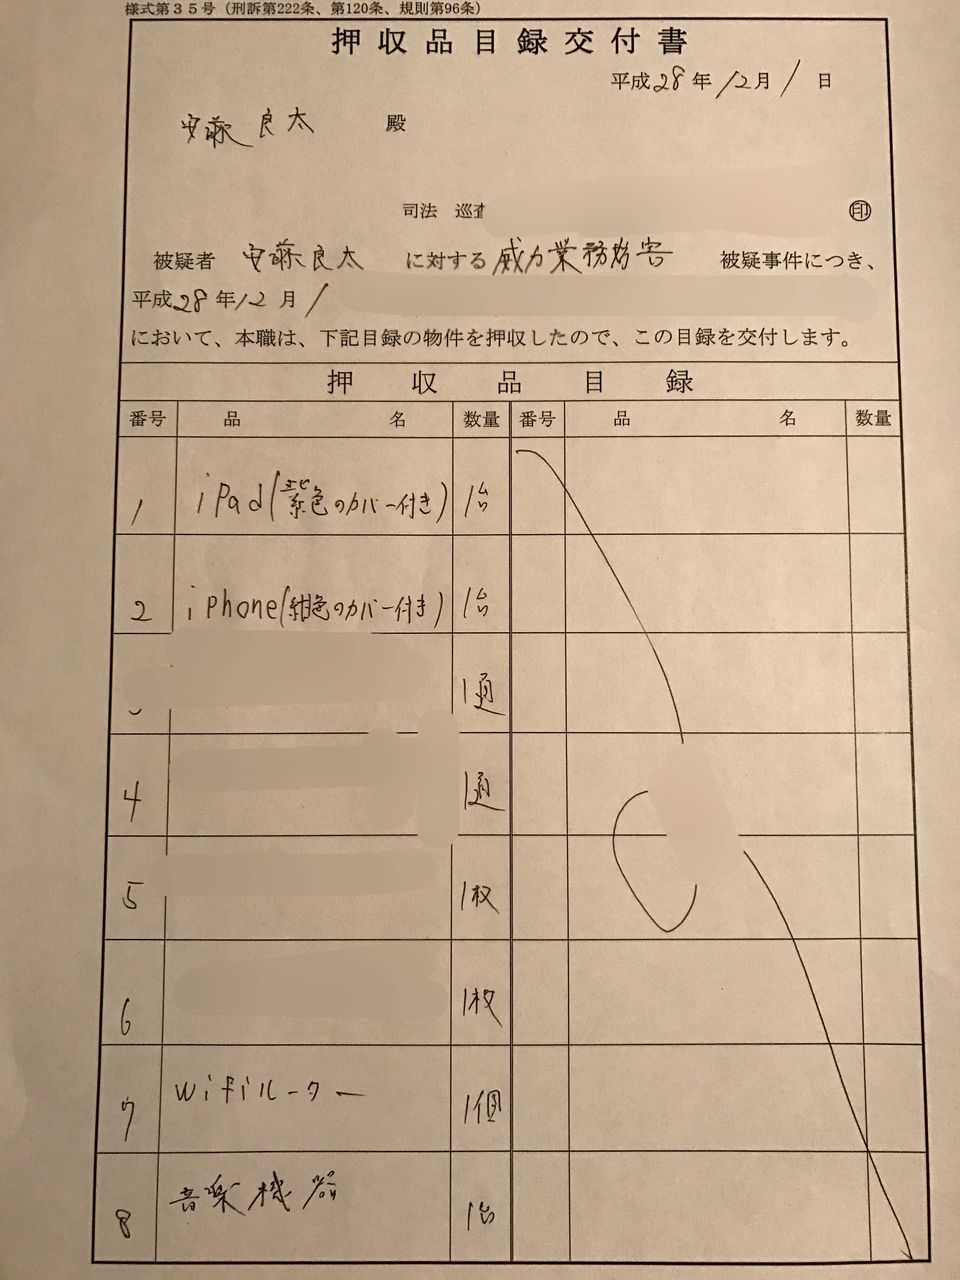 様式第３５号（刑訴第222条、第120条、規則第96条）
押収品目録交付書
平成28年12月1日
安藤良太 殿
司法 巡査
㊞
被疑者 安藤良太 に対する 威力業務妨害 被疑事件につき、
平成28年12月1
において、本職は、下記目録の物件を押収したので、この目録を交付します。
押収品目録
番号 品名 数量 番号 品名 数量
1 iPad(紫色のカバー付き) 1台
2 iPhone(紺色のカバー付き) 1台
1通
4 1通
5 1枚
6 1枚
7 wifiルーター 1個
8 音楽機器 1台